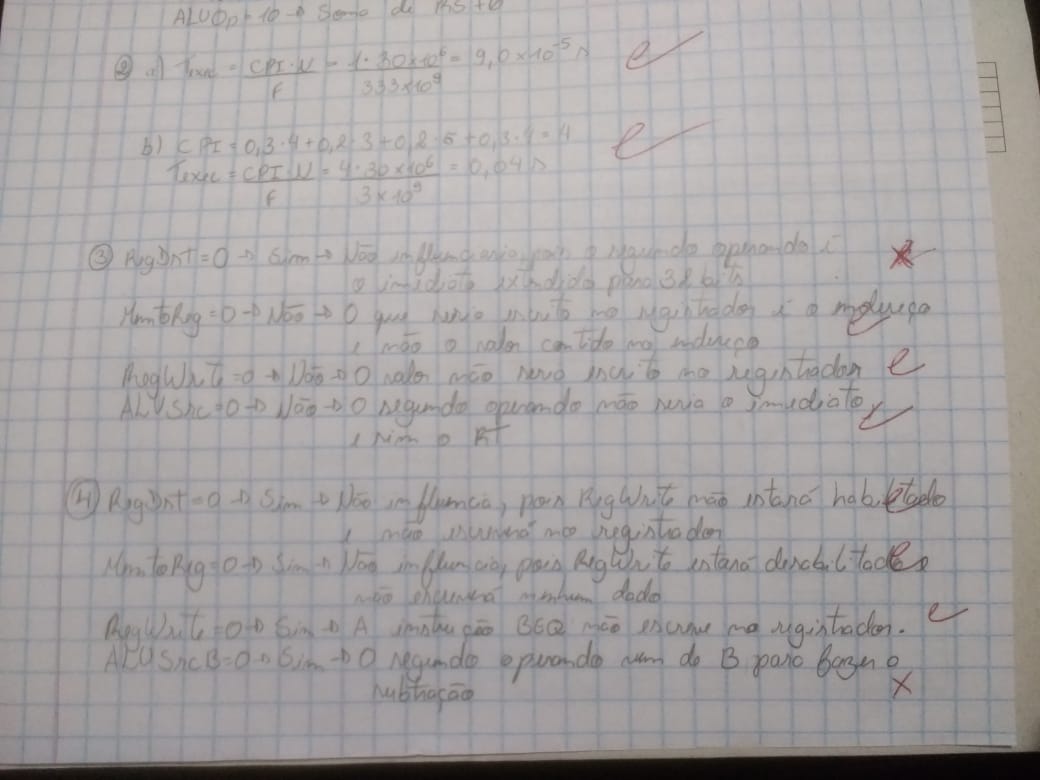 ALUOp = 10 → Soma de RS +
② a) Texec = CPI·N / F = 1·30x10⁶ / 333x10⁹ = 9,0x10⁻⁵ s
b) CPI = 0,3·4+0,2·3+0,2·5+0,3·4=4
Texec = CPI·N / F = 4·30x10⁶ / 3x10⁹ = 0,04 s
③ RegDst=0 → Sim → Não influenciaria, pois o segundo operando é
o imediato extendido para 32 bits
MemtoReg=0 → Não → O que seria escrito no registrador é o endereço
e não o valor contido no endereço
RegWrite=0 → Não → O valor não seria escrito no registrador
ALUSrc=0 → Não → O segundo operando não seria o imediato,
e sim o RT
④ RegDst=0 → Sim → Não influencia, pois RegWrite não estará habilitado
e não escreverá no registrador
MemtoReg=0 → Sim → Não influencia, pois RegWrite estará desabilitado
não escreverá nenhum dado
RegWrite=0 → Sim → A instrução BEQ não escreve no registrador.
ALUSrcB=0 → Sim → O segundo operando vem do B para fazer a
subtração